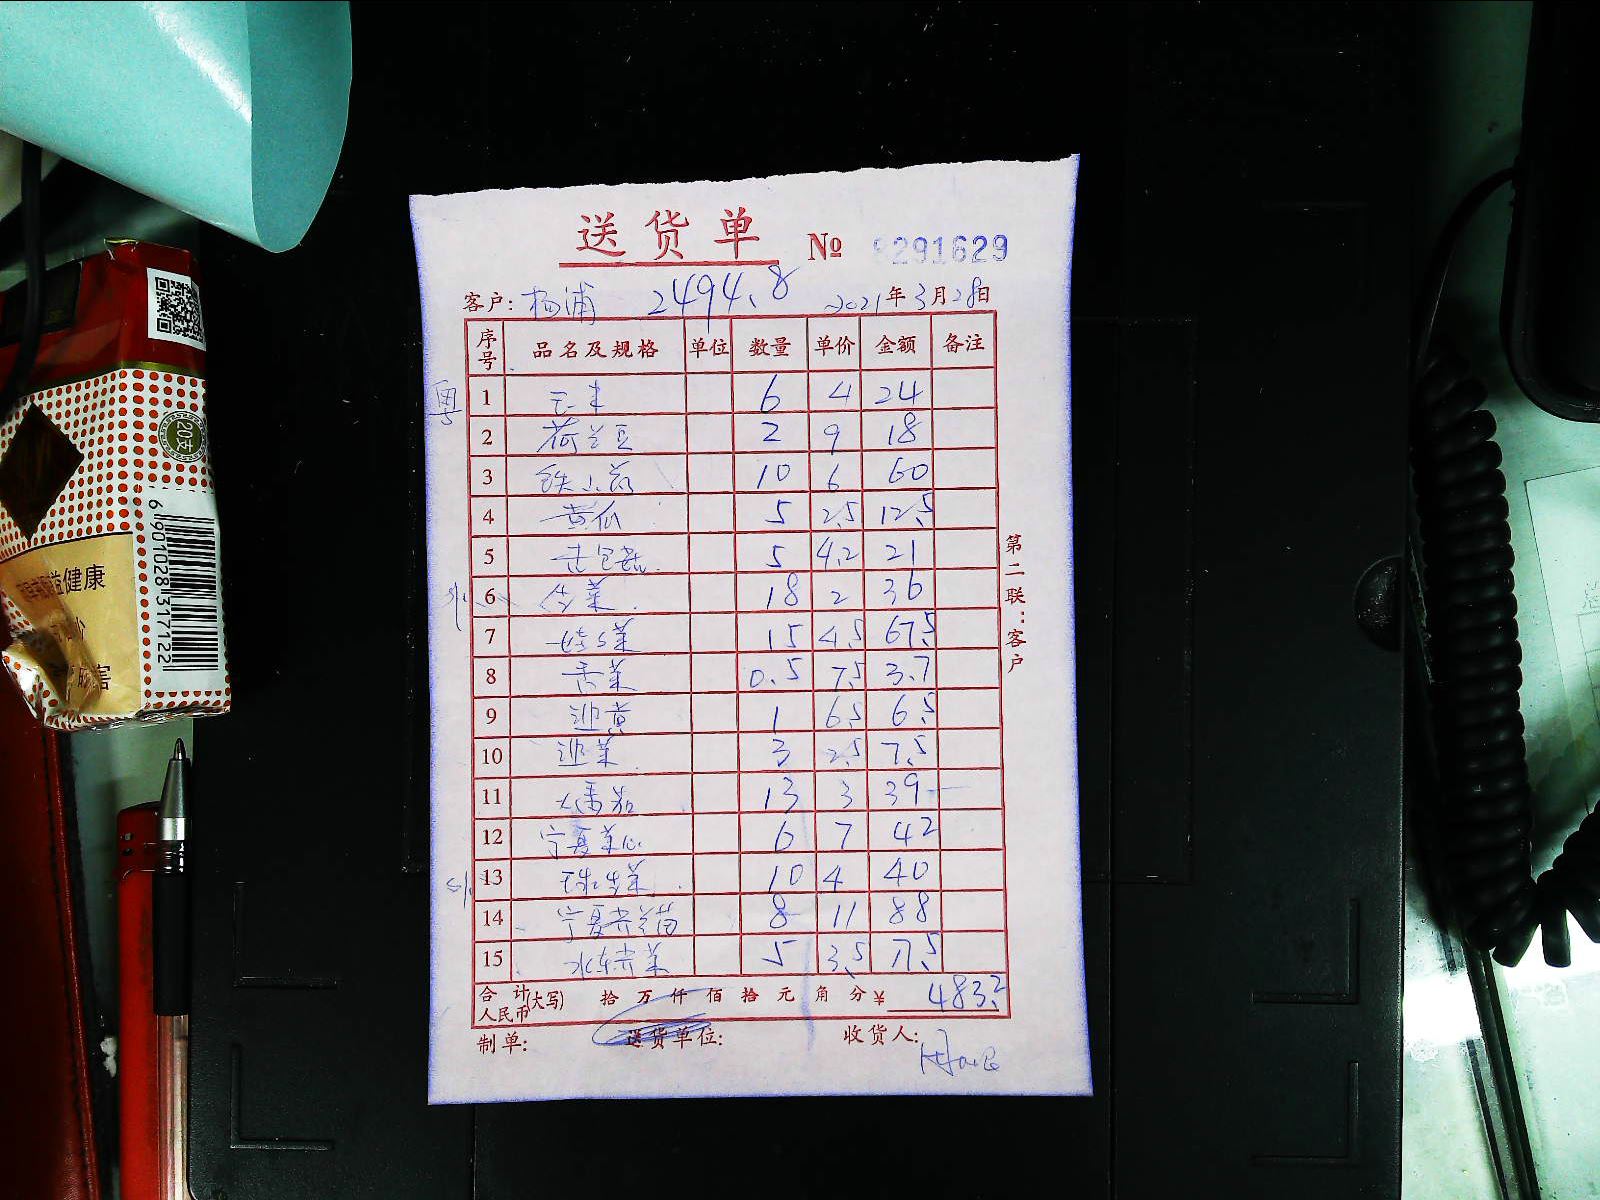 送货单 № 8291629
客户: 杨浦 2494.8 2021年3月28日
序号 品名及规格 单位 数量 单价 金额 备注
粤
1 玉米 6 4 24
2 荷兰豆 2 9 18
3 10 6 60
4 黄瓜 5 2.5 12.5
5 5 4.2 21
6 生菜 18 2 36
7 15 4.5 67.5
8 0.5 7.5 3.7
9 1 6.5 6.5
10 3 2.5 7.5
11 大番茄 13 3 39
12 宁夏菜心 6 7 42
13 10 4 40
14 宁夏芥兰苗 8 11 88
15 水东芥菜 5 3.5 7.5
合计人民币(大写) 拾 万 仟 佰 拾 元 角 分 ¥ 483.2
制单: 送货单位: 收货人:
第二联:客户
20支
健康
6 901028 317122